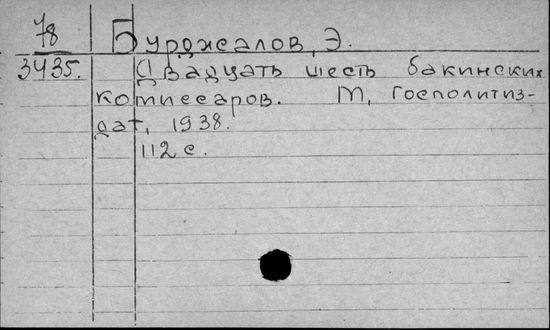 78 Бурджалов, Э.
3435. Двадцать шесть бакинских
комиссаров. М, Госполитиз-
дат, 1938.
112 с.